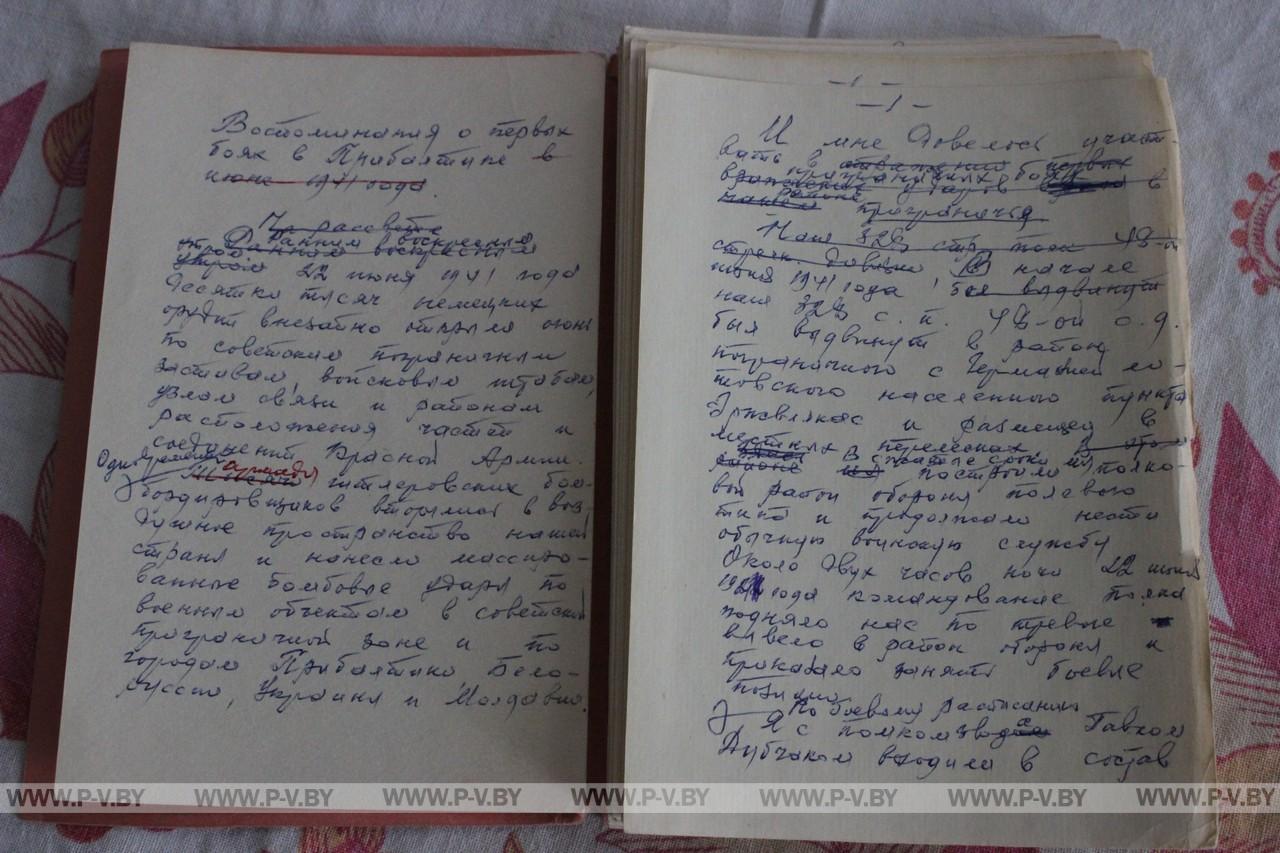 Воспоминания о первых
боях в Прибалтике в
июне 1941 года.
На рассвете
Ранним воскресным
утром 22 июня 1941 года
десятки тысяч немецких
орудий внезапно открыли огонь
по советским пограничным
заставам, войсковым штабам,
узлам связи и районам
расположения частей и
соединений Красной Армии.
Одновременно армады
гитлеровских бом-
бардировщиков вторглись в воз-
душное пространство нашей
страны и нанесли массиро-
ванные бомбовые удары по
военным объектам в советской
приграничной зоне и по
городам Прибалтики, Бело-
руссии, Украины и Молдавии.
- 1 -
- 1 -
И мне довелось участ-
вать в отражении первых
приграничных боях
вражеских ударов в
районе приграничья
Наш 328 стр. полк 48-ой
стрелк. дивизии В начале
июня 1941 года был выдвинут
наш 328 с. п. 48-ой с.д.
был выдвинут в район
пограничного с Германией ли-
товского населенного пункта
и размещен в
местных перелесках В этом
районе В сжатые сроки мы
построили полко-
вой район обороны полевого
типа и продолжали нести
обычную воинскую службу
Около двух часов ночи 22 июня
1941 года командование полка
подняло нас по тревоге
вывело в район обороны и
приказало занять боевые
позиции.
По боевому расписанию
Я с помкомвзвода Гавком
Дубчаком входили в состав
WWW.P-V.BY WWW.P-V.BY WWW.P-V.BY WWW.P-V.BY WWW.P-V.BY WWW.P-V.BY WWW.P-V.BY